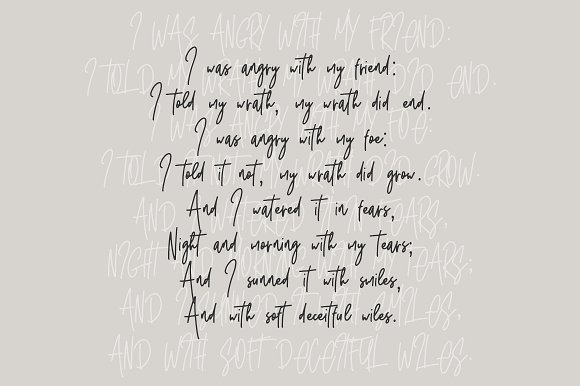 I was angry with my friend:
I told my wrath, my wrath did end.
I was angry with my foe:
I told it not, my wrath did grow.
And I watered it in fears,
Night and morning with my tears;
And I sunned it with smiles,
And with soft deceitful wiles.